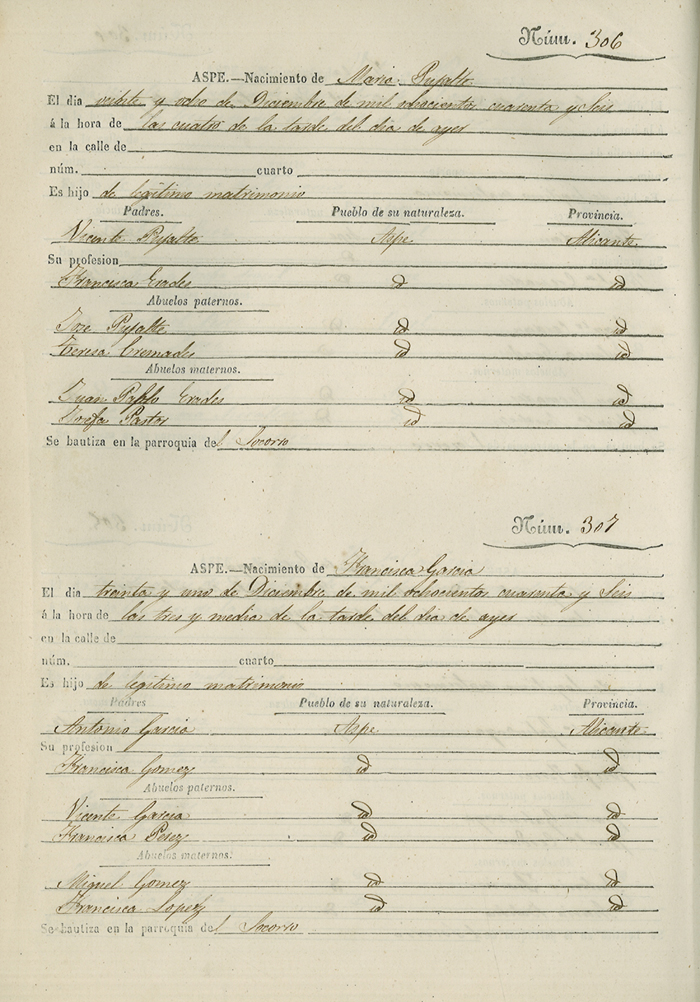 Núm. 306
ASPE.—Nacimiento de Maria Pujalte
El dia veinte y ocho de Diciembre de mil ochocientos cuarenta y Seis
á la hora de las cuatro de la tarde del dia de ayer
en la calle de
núm. cuarto
Es hijo de legitimo matrimonio
Padres. Pueblo de su naturaleza. Provincia.
Vicente Pujalte Aspe Alicante
Su profesion
Francisca Erades id id
Abuelos paternos.
Jose Pujalte id id
Teresa Cremades id id
Abuelos maternos.
Juan Pablo Erades id id
Josefa Pastor id id
Se bautiza en la parroquia del Socorro
Núm. 307
ASPE.—Nacimiento de Francisca Garcia
El dia treinta y uno de Diciembre de mil ochocientos cuarenta y Seis
á la hora de las tres y media de la tarde del dia de ayer
en la calle de
núm. cuarto
Es hijo de legitimo matrimonio
Padres Pueblo de su naturaleza. Provincia.
Antonio Garcia Aspe Alicante
Su profesion
Francisca Gomez id id
Abuelos paternos.
Vicente Garcia id id
Francisca Perez id id
Abuelos maternos.
Miguel Gomez id id
Francisca Lopez id id
Se bautiza en la parroquia del Socorro